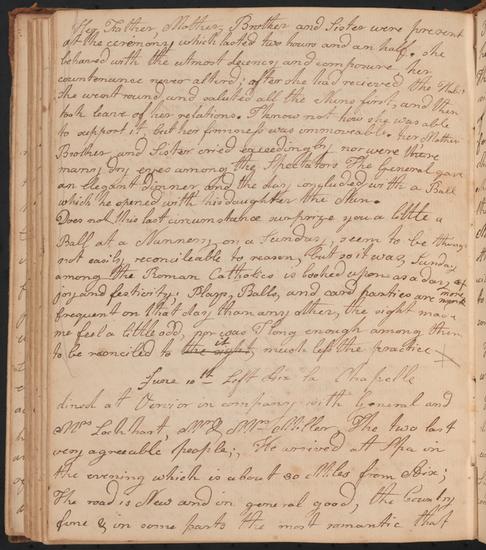 Her Father, Mother, Brother and Sister were present
at the ceremony which lasted two hours and an half. she
behaved with the utmost decency and composure her
countenance never alterd; after she had recieved the Habit
she went round and saluted all the Nuns first, and then
took leave of her relations. I know not how she was able
to support it but her firmness was immoveable. her Mother
Brother and Sister cried exceedingly nor were there
many dry eyes among the Spectators The General gave
an elegant dinner and the day concluded with a Ball
which he opened with his daughter the Nun.
Does not this last circumstance surprize you a little a
Ball at a Nunnery, on a Sunday, seem to be things
not easily reconcileable to reason, but so it was, Sunday
among the Roman Catholics is looked upon as a day of
joy and festivity; Plays, Balls, and card parties are more
frequent on that day than any other, the sight made
me feel a little odd, nor was I long enough among them
to be reconciled to the sight it much less the practice
June 10th Left Aix la Chapelle
dined at Vervier in company with General and
Mrs Lockhart, Mr & Mrs Miller, The two last
very agreeable people; We arrived at Spa in
the evening which is about 30 Miles from Aix;
The road is New and in general good, the Country
fine & in some parts the most romantic that